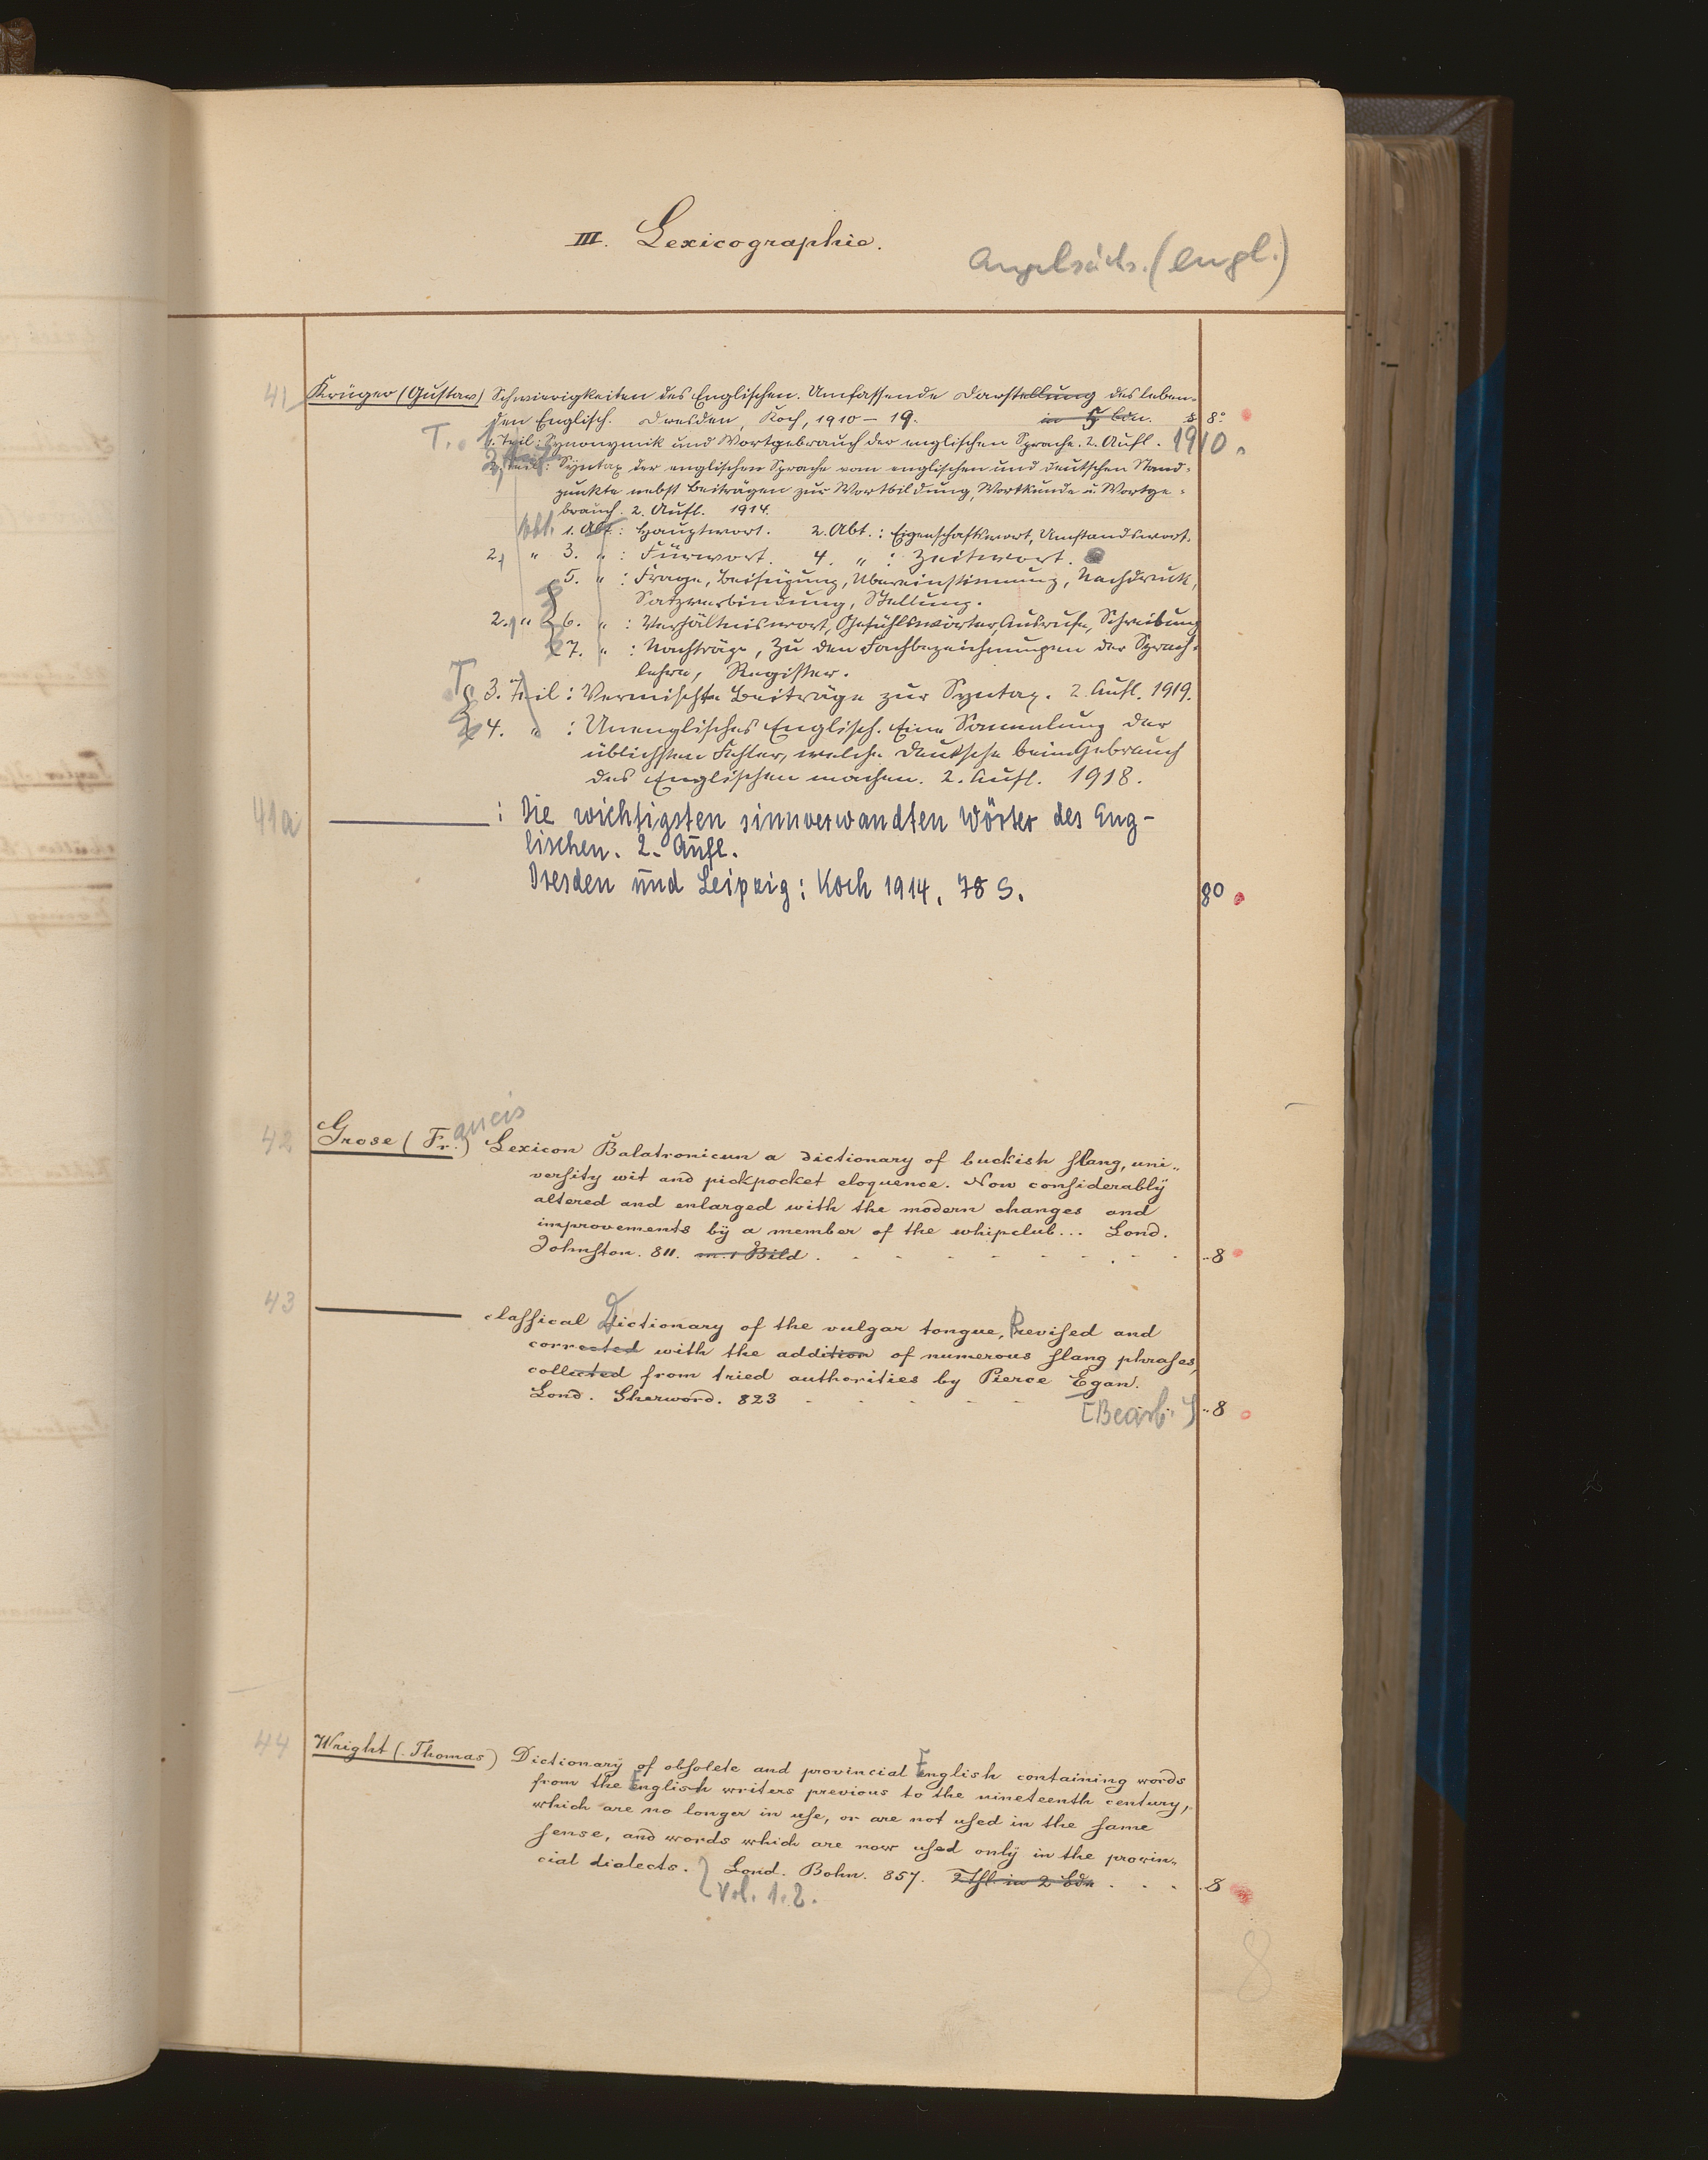 III. Lexicographie.
Angelsächs. (engl.)
41 Krüger (Gustav) Schwierigkeiten des Englischen. Umfassende Darstellung des leben-
den Englisch. Dresden, Koch, 1910–19. in 5 bdn. 8 8°
T. 1. Teil: Synonymik und Wortgebrauch der englischen Sprache. 2. Aufl. 1910.
2. Teil: Syntax der englischen Sprache vom englischen und deutschen Stand-
punkte nebst Beiträgen zur Wortbildung, Wortkunde u. Wortge-
brauch. 2. Aufl. 1914.
Abt. 1. Abt.: Hauptwort. 2. Abt.: Eigenschaftswort, Umstandswort.
2, " 3. " : Fürwort. 4. " : Zeitwort.
5. " : Frage, Beifügung, Übereinstimmung, Nachdruck,
Satzverbindung, Stellung.
2, " 6. " : Verhältniswort, Gefühlswörter, Ausrufe, Schreibung
7. " : Nachträge, Zu den Fachbezeichnungen der Sprach-
lehre, Register.
T. 3. Teil: Vermischte Beiträge zur Syntax. 2. Aufl. 1919.
4. " : Unenglisches Englisch. Eine Sammlung der
üblichsten Fehler, welche Deutsche beim Gebrauch
des Englischen machen. 2. Aufl. 1918.
41a : Die wichtigsten sinnverwandten Wörter des Eng-
lischen. 2. Aufl.
Dresden und Leipzig: Koch 1914. 78 S. 8°
42 Grose (Fr.) ancis Lexicon Balatronicum a dictionary of buckish slang, uni-
versity wit and pickpocket eloquence. Now considerably
altered and enlarged with the modern changes and
improvements by a member of the whipclub... Lond.
Johnston. 811. m. 1 Bild . . . . . . . . 8
43 classical Dictionary of the vulgar tongue, Revised and
corrected with the addition of numerous slang phrases,
collected from tried authorities by Pierce Egan.
Lond. Sherword. 823 . . . . . [Bearb.] 8
44 Wright (Thomas) Dictionary of obsolete and provincial English containing words
from the English writers previous to the nineteenth century,
which are no longer in use, or are not used in the same
sense, and words which are now used only in the provin-
cial dialects. Lond. Bohn. 857. 2 Thl. in 2 bdn . . . 8
Vol. 1. 2.
8